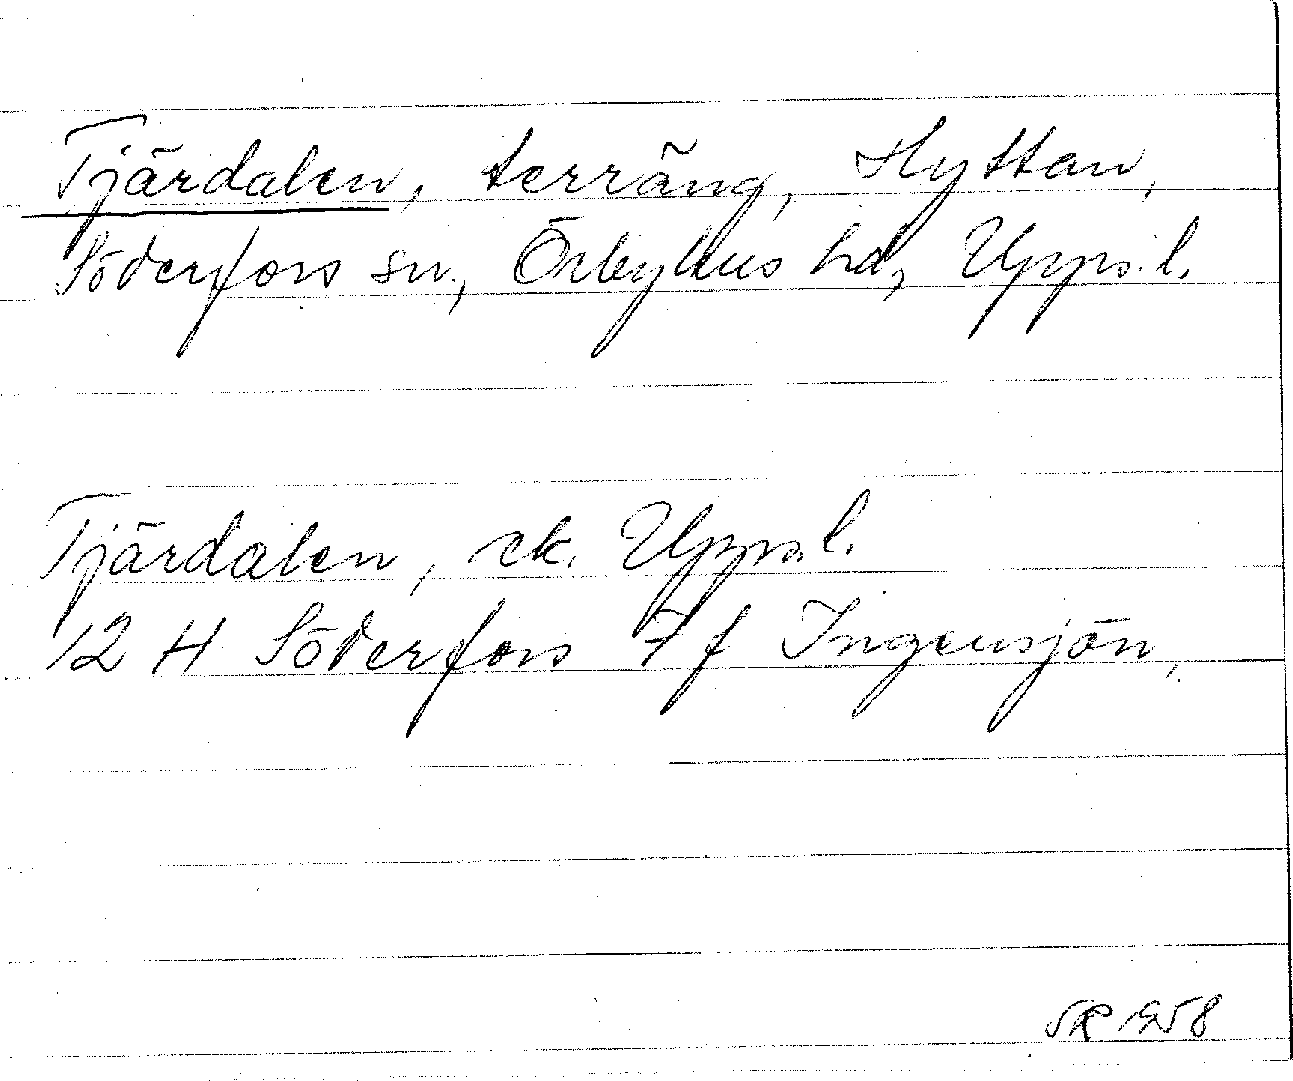 Tjärdalen, terräng, Hyttan,
Söderfors sn., Örbyhus hd, Upps. l.
Tjärdalen, ek. Upps. l.
12 H Söderfors 7 f Ingensjön,
SR 1958